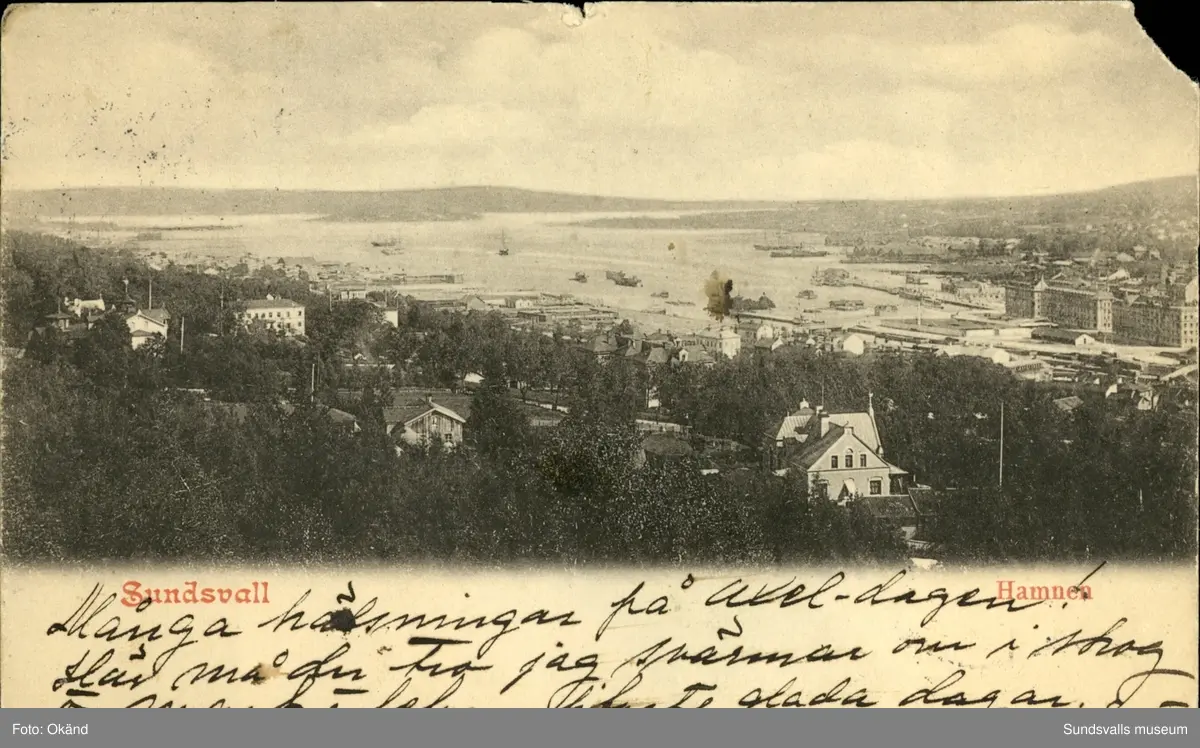 Sundsvall
Hamnen
Många hälsningar på Axel-dagen!
Här må du tro jag svärmar om i skog
glada dagar.
Foto: Okänd
Sundsvalls museum